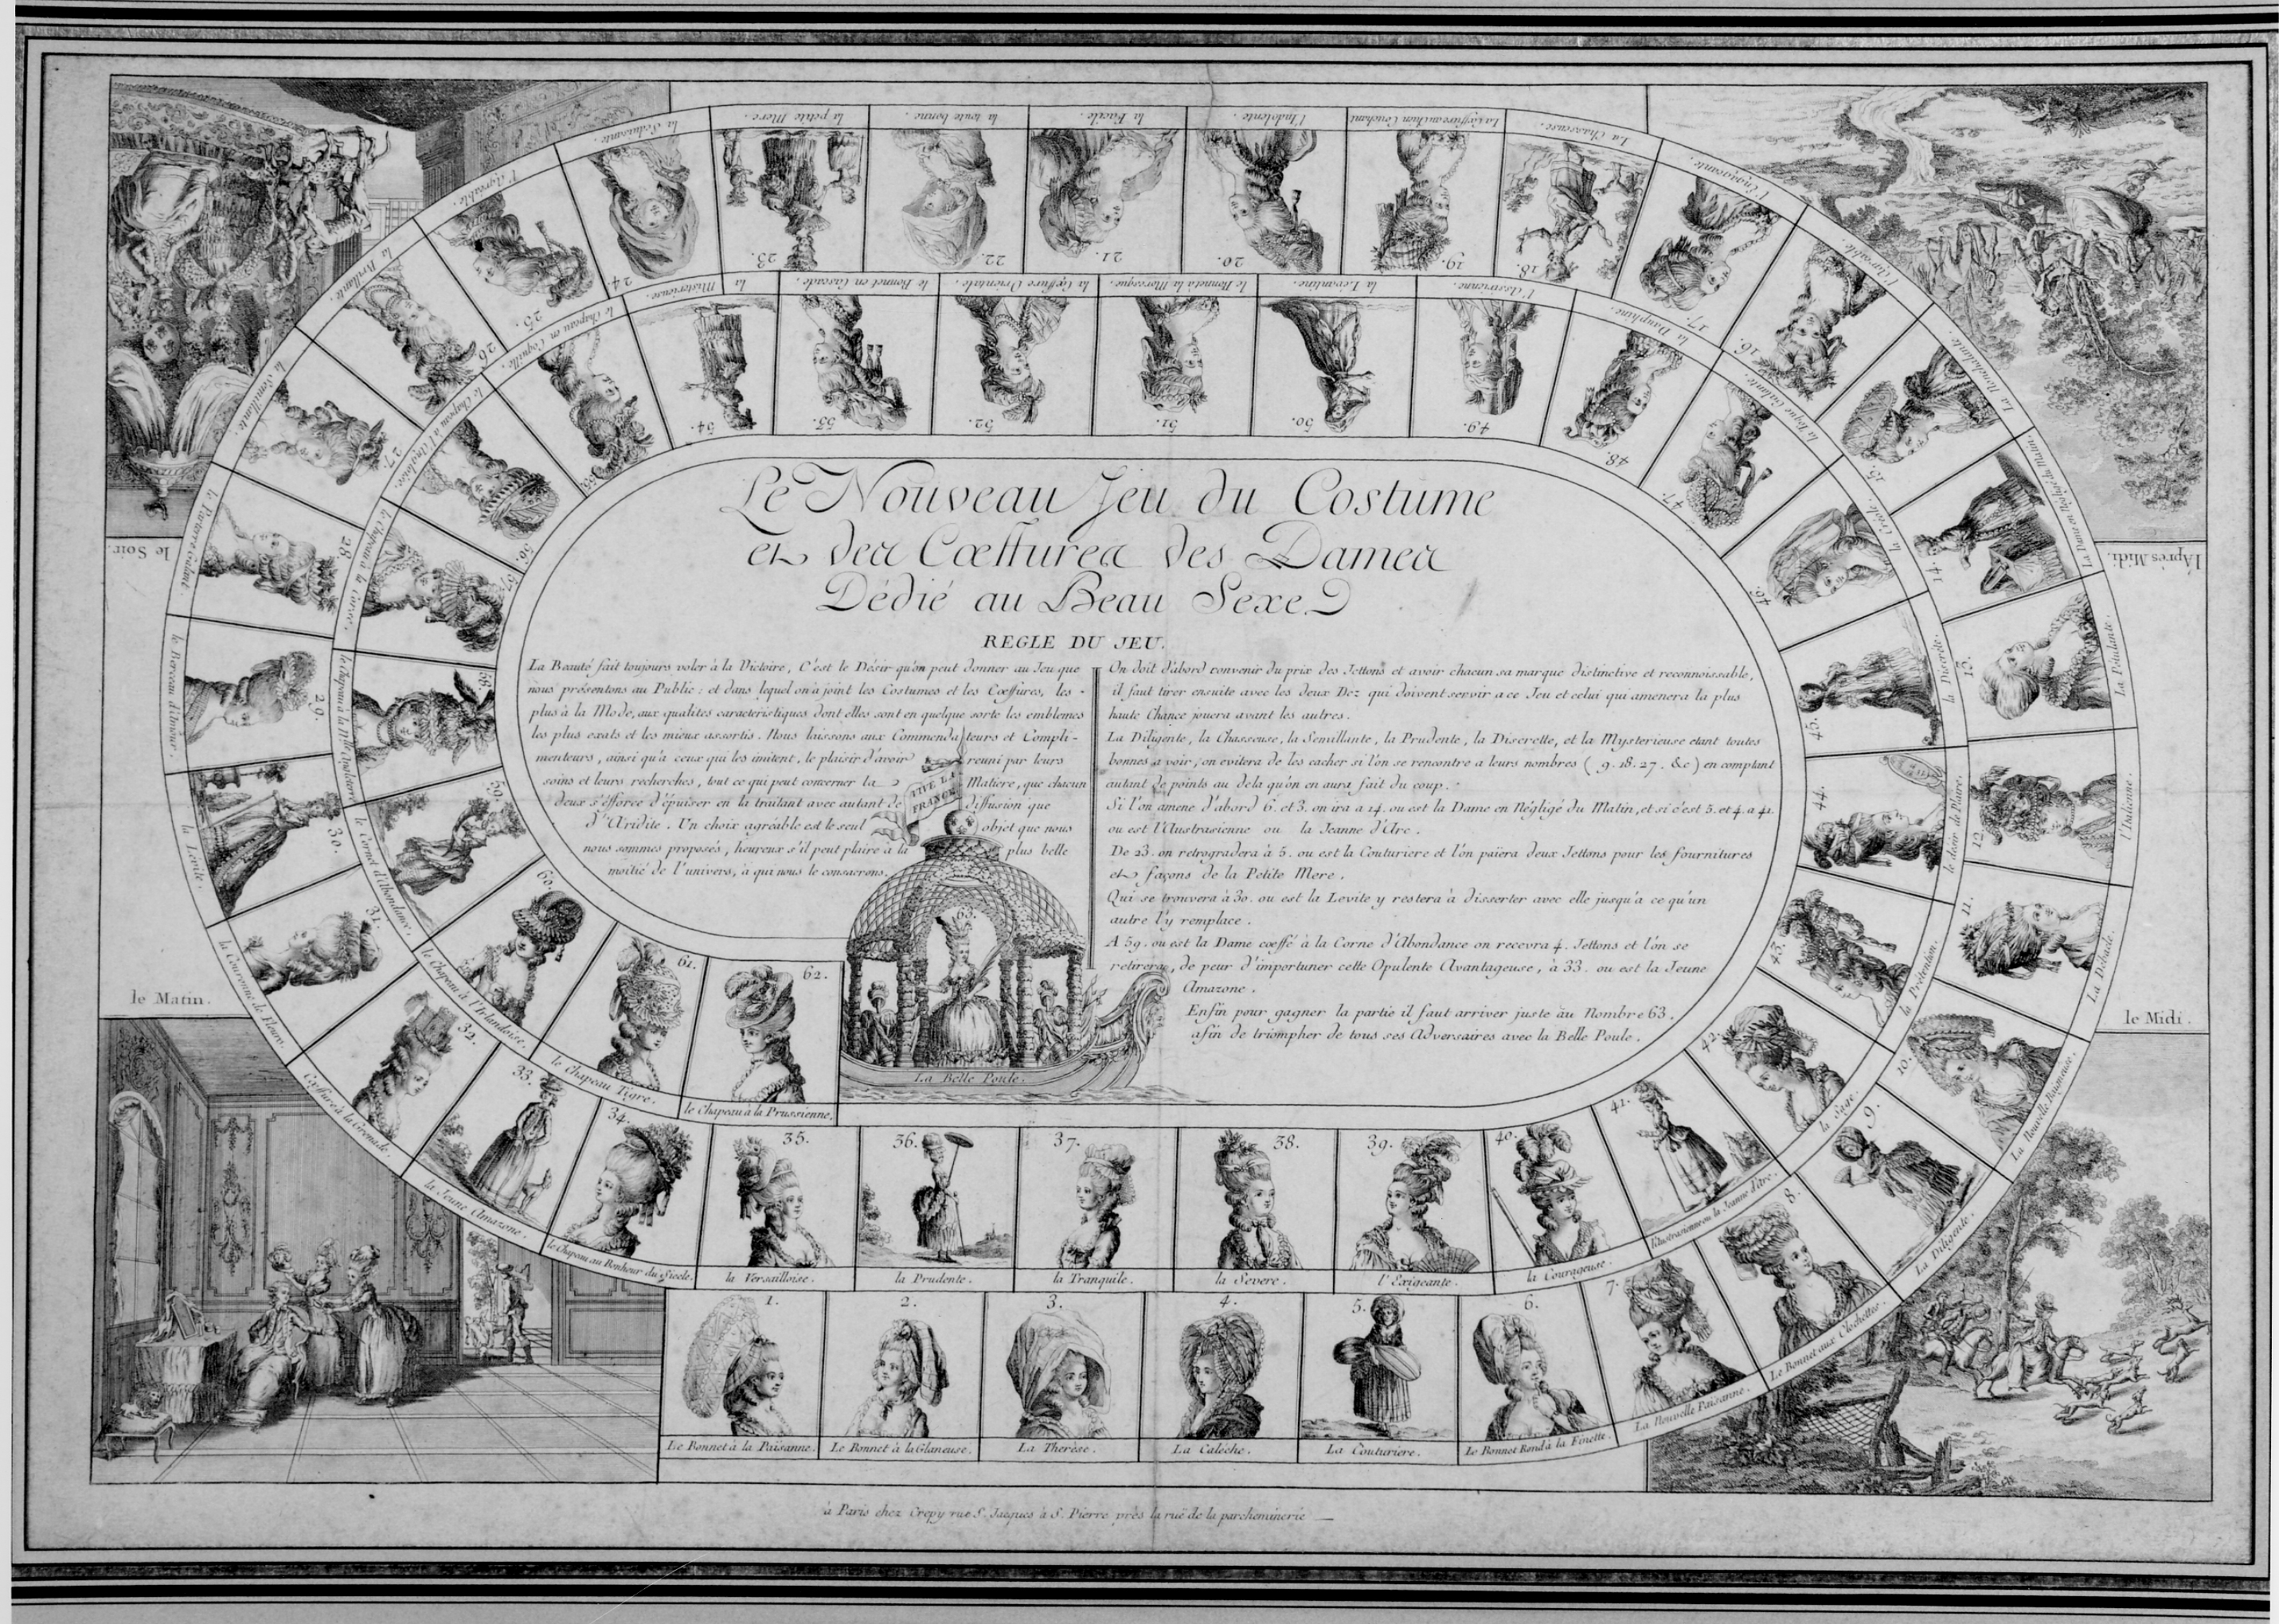 Le Nouveau Jeu du Costume
et des Cœffures des Dames
Dédié au Beau Sexe
REGLE DU JEU.
La Beauté fait toujours voler à la Victoire, C'est le Décir qu'on peut donner au Jeu que
nous présentons au Public: et dans lequel on a joint les Costumes et les Cœffures, les-
plus à la Mode, aux qualités caracteristiques dont elles sont en quelque sorte les emblemes
les plus exats et les mieux assortis. Nous laissons aux Commendateurs et Compli-
menteurs, ainsi qu'à ceux qui les imitent, le plaisir d'avoir reuni par leurs
soins et leurs recherches, tout ce qui peut concerner la Matiere, que chacun
deux s'efforce d'épuiser en la traitant avec autant de diffusion que
d'Aridite. Un choix agréable est le seul objet que nous
nous sommes proposés, heureux s'il peut plaire à la plus belle
moitié de l'univers, à qui nous le consacrons.
On doit d'abord convenir du prix des Jettons et avoir chacun sa marque distinctive et reconnoissable,
il faut tirer ensuite avec les deux Dez qui doivent servir a ce Jeu et celui qui amenera la plus
haute Chance jouera avant les autres.
La Diligente, la Chasseuse, la Semillante, la Prudente, la Discrette, et la Mysterieuse etant toutes
bonnes a voir, on evitera de les cacher si l'on se rencontre a leurs nombres (9. 18. 27. &c) en comptant
autant de points au dela qu'on en aura fait du coup.
Si l'on amene d'abord 6. et 3. on ira a 14. ou est la Dame en Négligé du Matin, et si c'est 5. et 4. a 41.
ou est l'Austrasienne ou la Jeanne d'Arc.
De 23. on retrogradera à 5. ou est la Couturiere et l'on païera deux Jettons pour les fournitures
et façons de la Petite Mere.
Qui se trouvera à 30. ou est la Levite y restera à disserter avec elle jusqu'à ce qu'un
autre l'y remplace.
A 59. ou est la Dame cœffé à la Corne d'Abondance on recevra 4. Jettons et l'on se
retirera, de peur d'importuner cette Opulente Avantageuse, à 33. ou est la Jeune
Amazone.
Enfin pour gagner la partie il faut arriver juste au Nombre 63.
afin de triompher de tous ses Adversaires avec la Belle Poule.
VIVE LA
FRANCE
63.
La Belle Poule.
1.
Le Bonnet à la Païsanne.
2.
Le Bonnet à la Glaneuse.
3.
La Therese.
4.
La Caléche.
5.
La Couturiere.
6.
Le Bonnet Rond à la Finette.
7.
La Nouvelle Païsanne.
8.
Le Bonnet aux Clochettes.
9.
La Diligente.
10.
La Nouvelle Baigneuse.
11.
La Debacle.
12.
l'Italienne.
13.
La Pétulante.
14.
La Dame en Négligé du Matin.
15.
La Nonchalante.
16.
17.
l'Engageante.
18.
La Chasseuse.
19.
La Cœffure au chien Couchant
20.
l'Indolente.
21.
la Facile.
22.
la toute bonne.
23.
la petite Mere.
24.
la Séduisante.
25.
l'Agréable.
26
la Brillante.
27.
la Semillante.
28.
le Parterre Galant
29.
le Berceau d'Amour.
30.
la Levite.
31.
la Couronne de Fleurs.
32.
Cœffure à la Grenade.
33.
la Jeune Amazone.
34.
le Chapeau au Bonheur du Siecle.
35.
la Versailloise.
36.
la Prudente.
37.
la Tranquile.
38.
la Severe.
39.
l'Exigeante.
40.
la Courageuse.
41.
l'Austrasienne ou la Jeanne d'Arc.
42.
la Sage.
43.
la Prétention.
44.
le désir de Plaire.
45.
la Discrete.
46.
la Créole.
47.
la Toque Galante.
48.
la Dauphine.
49.
50.
la Levantine.
51.
le Bonnet à la Moresque.
52.
la Cœffure Orientale.
53.
le Bonnet en Cascade.
54.
la Misterieuse.
55.
le Chapeau en Coquille.
56.
le Chapeau à l'Angloise.
57.
le Chapeau à la Corse.
58.
59.
le Cornet d'Abondance.
60.
le Chapeau à l'Irlandoise.
61.
le Chapeau Tigre.
62.
le Chapeau à la Prussienne.
le Matin.
le Midi.
l'Après Midi.
le Soir.
à Paris chez Crepy rue S. Jacques à S. Pierre près la rue de la parcheminerie